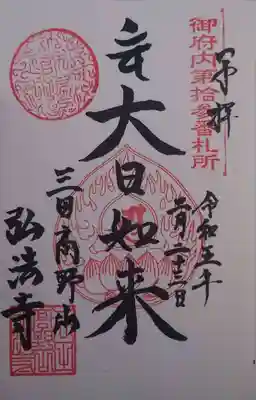 御府内第拾参番札所
奉拝
令和
月二十三日
大日如来
三田高野山
弘法寺